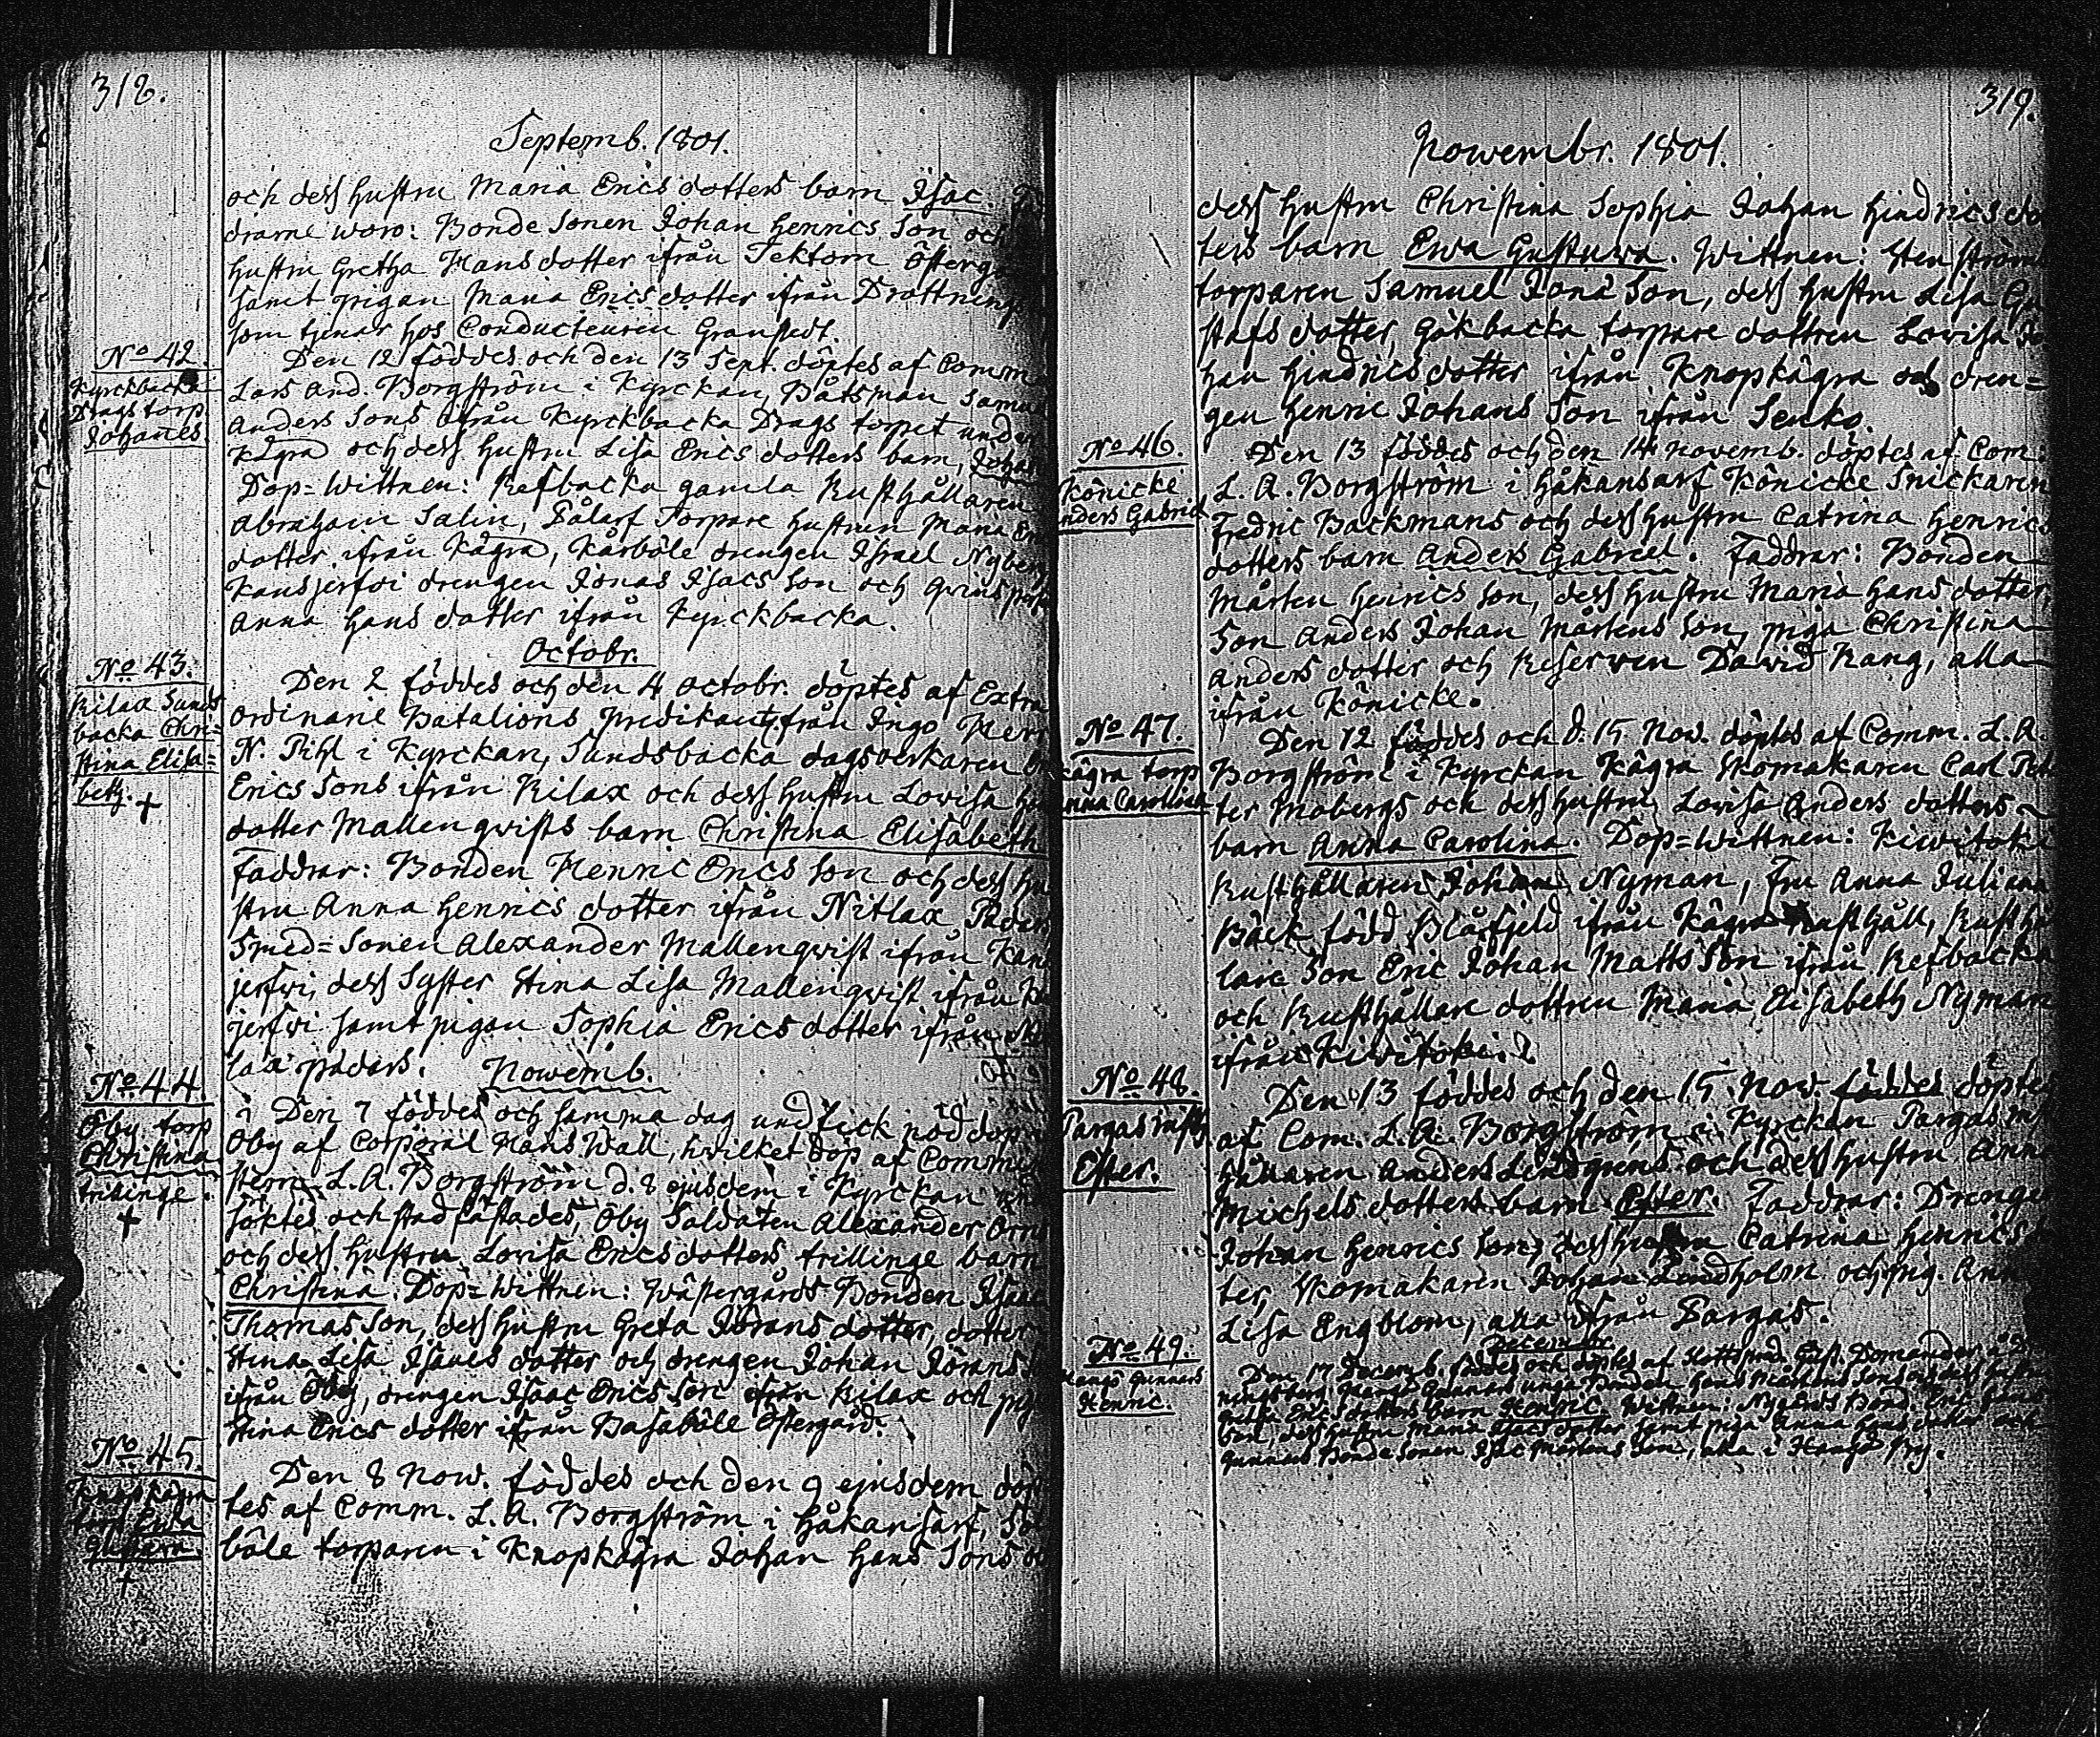 318.
Septemb. 1801.
och dess hustru Maria Erics dotters barn Isac.
drarne woro: Bonde Sonen Johan Henrics Son och
hustru Gretha Hans dotter ifrån Tektom Österg
samt pigan Maria Erics dotter ifrån Drottning
som tjenar hos Conducteuren Granstedt.
No 42.
Kyrckbacka
Drags torp
Johanes
Den 12 föddes och den 13 Sept. döptes af Comm
Lars And. Borgström i Kyrckan, Båtsman Samu
Anders Sons ifrån Kyrckbacka Drags torpet under
Kågra och dess hustru Lisa Erics dotters barn, Johan
Dop=Wittnen: Refbacka gamla Rusthållaren
Abraham Salin, Torpare hustrun Maria
dotter ifrån Kågra, Kårböle drengen Israel Nyberg
Kansjerfvi drengen Jonas Isacs Son och
Anna Hans dotter ifrån Kyrckbacka.
Octobr.
No 43.
Rilax Sunds
backa Chri=
stina Elisa=
beth. +
Den 2 föddes och den 4 Octobr. döptes af Extra
Ordinarie Batalions Predikant ifrån Ingo Herr
N. Pihl i Kyrckan, Sundsbacka dagsverkaren
Erics Sons ifrån Rilax och dess hustru Lovisa
dotter Mallenqvists barn Christina Elisabeth
Faddrar: Bonden Henric Erics Son och dess hu
stru Anna Henrics dotter ifrån Nitlax Padars
Smed=Sonen Alexander Mallenqvist ifrån Kans
jerfvi, dess Syster Stina Lisa Mallenqvist ifrån
jerfvi samt pigan Sophia Erics dotter ifrån
lax padars.
Nowemb.
No 44.
Öby torp
Christina
trilinge.
+
Den 7 föddes och samma dag undfick nöddop
Öby af Corporal Hans Wall, hwilket dop af Commi
stern L. A. Borgström d. 8 ejusdem i Kyrckan
söktes och stadfästades, Öby Soldaten Alexander Örn
och dess hustru Lovisa Erics dotters trillinge barn
Christina. Dop=Wittnen: Wästergårds Bonden Isaac
Thomas Son, dess hustru Greta Jörans dotter, dotter
Stina Lisa Isaacs dotter och drengen Johan Jörans
ifrån Öby, drengen Isaac Erics Son ifrån Rilax och pig
Stina Erics dotter ifrån Basaböle Östergård.
No 45.
Knopkågra
torp Ewa
Gustava
+
Den 8 Now. föddes och den 9 ejusdem döp
tes af Comm. L. A. Borgström i Håkansarf,
böle torparen i Knopkågra Johan Hans Sons
319.
Nowembr. 1801.
dess hustru Christina Sophia Johan Hindrics do
ters barn Ewa Gustuwa. Wittnen: Stenströms
torparen Samuel Jona Son, dess hustru Lisa Gu
stafs dotter, Gökbacka torpare dottren Lovisa Jo
han Hindrics dotter ifrån Knopkågra och dren=
gen Henric Johans Son ifrån Senko.
No 46.
Könicke
nders Gabriel
Den 13 föddes och den 14 Novemb. döptes af Com.
L. A. Borgström i Håkansarf Könicke Snickaren
Fredric Backmans och dess hustru Catrina Henrics
dotters barn Anders Gabriel. Faddrar: Bonden
Mårten Henrics Son, dess hustru Maria Hans dotter,
Son Anders Johan Mårtens Son, piga Christina
Anders dotter och Reserven Dawid Rang, alla
ifrån Könicke.
No 47.
Kågra torp
nna Carolina
Den 12 föddes och d. 15 Now. döptes af Comm. L. A.
Borgström i Kyrckan Kågra Skomakaren Carl Pet
ter Mobergs och dess hustru Lovisa Anders dotters
barn Anna Carolina. Dop=Wittnen: Kiwitoki
Rusthållaren Johan Nyman, Fru Anna Juliana
Bäck född Blåfjeld ifrån Kågra Rusthåll, Rusthå
lare Son Eric Johan Matts Son ifrån Refbacka
och Rusthållare dottren Maria Elisabeth Nyman
ifrån Kiwitoki.
No 48.
Pargas
Ester.
Den 13 föddes och den 15 Now. föddes döptes
af Com. L. A. Borgström i Kyrckan Pargas
hållaren Anders Lindgrens och dess hustru Anna
Michels dotters barn Ester. Faddrar: Drengen
Johan Henrics Son, dess hustru Catrina Henrics
ter, Skomakaren Johan Lindholm och pig. Anna
Lisa Engblom, alla ifrån Pargas.
Decembr.
No 49.
Hangö Gunnars
Henric.
Den 17 Decemb. föddes och döptes af Slottspred. Gust. Domander å
Hangö Gunnars unga Bonden Hans Mårtens Sons och dess hustru
Erics dotters barn Henric. Wittnen: Bond. Eric
Son, dess hustru Maria Isacs dotter samt piga Anna Hans dotter och
Gunnars Bonde Sonen Isac Mårtens Son, alla i Hangö